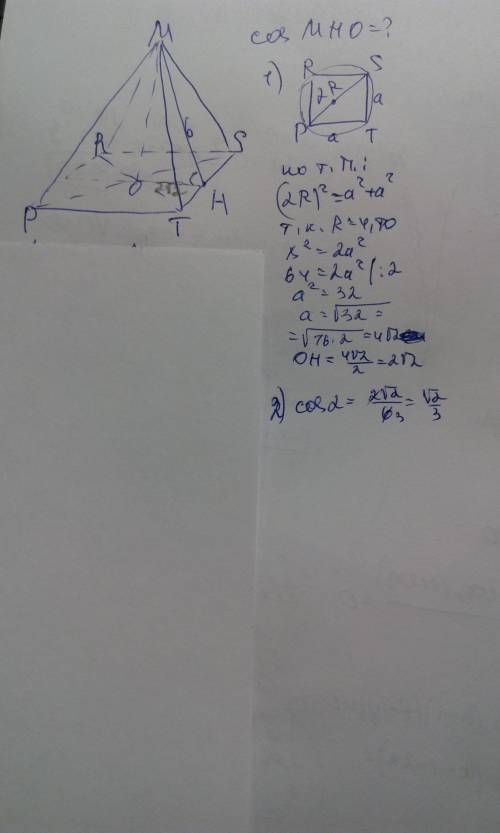 cos MHO = ?
M
6
R
S
O
H
P
T
1)
R
S
2R
a
P
a
T
по т. П.:
(2R)² = a² + a²
т.к. R = 4, то
8² = 2a²
64 = 2a² | : 2
a² = 32
a = √32 =
= √16·2 = 4√2
OH = 4√2/2 = 2√2
2) cos α = 2√2/6 3 = √2/3